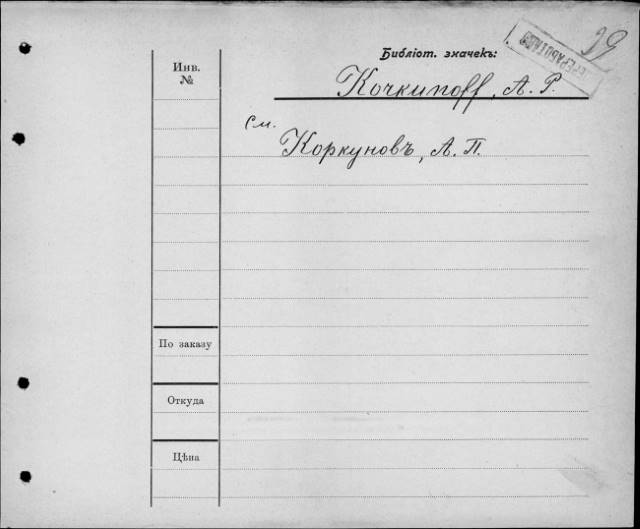 29
ПЕРЕРАБОТАНО
Библіот. значекъ:
Инв.
№
Kockunoff, A. P.
см.
Коркуновъ, А. П.
По заказу
Откуда
Цѣна